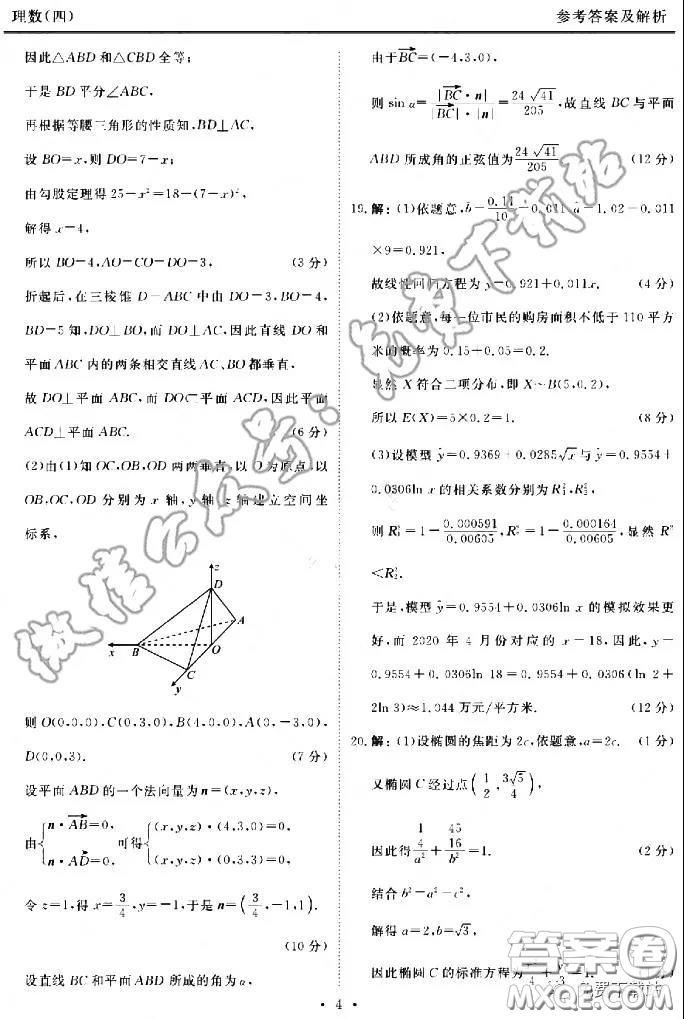 理数(四)
参考答案及解析
因此△ABD 和△CBD 全等;
于是 BD 平分∠ABC,
再根据等腰三角形的性质知,BD⊥AC,
设 BO=x,则 DO=7-x;
由勾股定理得 25-x²=18-(7-x)²,
解得 x=4,
所以 BO=4,AO=CO=DO=3, (3 分)
折起后,在三棱锥 D-ABC 中由 DO=3,BO=4,
BD=5 知,DO⊥BO,而 DO⊥AC,因此直线 DO 和
平面 ABC 内的两条相交直线 AC、BO 都垂直,
故 DO⊥平面 ABC,而 DO⊂平面 ACD,因此平面
ACD⊥平面 ABC. (6 分)
(2)由(1)知 OC,OB,OD 两两垂直,以 O 为原点,以
OB,OC,OD 分别为 x 轴,y 轴 z 轴建立空间坐
标系,
z
D
A
x B O
C
y
则 O(0,0,0),C(0,3,0),B(4,0,0),A(0,-3,0),
D(0,0,3). (7 分)
设平面 ABD 的一个法向量为 n=(x,y,z),
由{n·AB=0, n·AD=0, 可得{(x,y,z)·(4,3,0)=0, (x,y,z)·(0,3,3)=0,
令 z=1,得 x=3/4,y=-1,于是 n=(3/4,-1,1).
(10 分)
设直线 BC 和平面 ABD 所成的角为 α,
由于BC=(-4,3,0),
则 sin α=|BC·n|/|BC|·|n|=24√41/205,故直线 BC 与平面
ABD 所成角的正弦值为24√41/205 (12 分)
19.解:(1)依题意,b=0.11/10=0.011,a=1.02-0.011
×9=0.921,
故线性回归方程为 y=0.921+0.011x. (4 分)
(2)依题意,每一位市民的购房面积不低于 110 平方
米的概率为 0.15+0.05=0.2.
显然 X 符合二项分布,即 X~B(5,0.2),
所以 E(X)=5×0.2=1. (8 分)
(3)设模型 ŷ=0.9369+0.0285√x 与 ŷ=0.9554+
0.0306ln x 的相关系数分别为 R₁²,R₂²,
则 R₁²=1-0.000591/0.00605,R₂²=1-0.000164/0.00605,显然 R²
<R₂².
于是,模型 ŷ=0.9554+0.0306ln x 的模拟效果更
好,而 2020 年 4 月份对应的 x=18,因此,y=
0.9554+0.0306ln 18=0.9554+0.0306(ln 2+
2ln 3)≈1.044 万元/平方米. (12 分)
20.解:(1)设椭圆的焦距为 2c,依题意,a=2c. (1 分)
又椭圆 C 经过点(1/2,3√5/4),
因此得 (1/4)/a²+(45/16)/b²=1. (2 分)
结合 b²=a²-c²,
解得 a=2,b=√3,
因此椭圆 C 的标准方程为
· 4 ·
微信公众号:免费下载站
答案卷
免费下载站